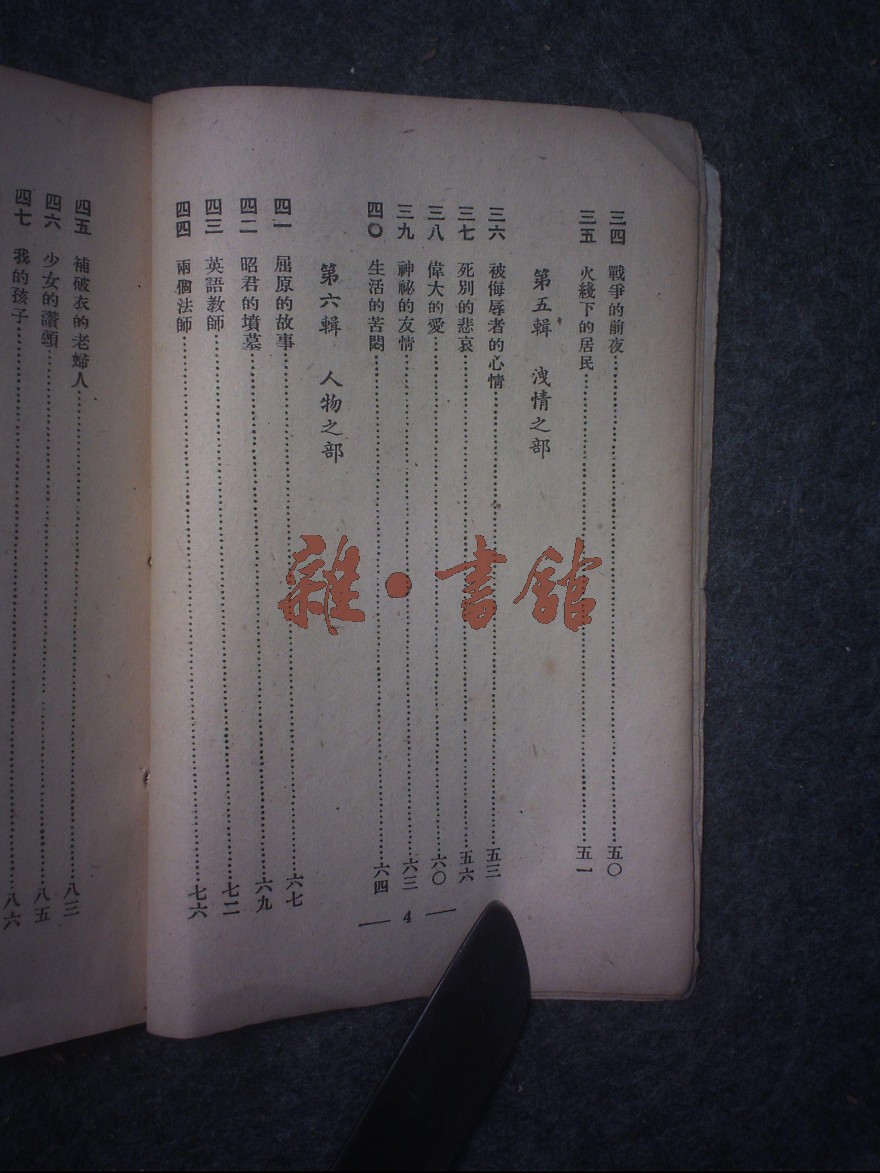 三四　戰爭的前夜……五〇
三五　火綫下的居民……五一
第五輯　洩情之部
三六　被侮辱者的心情……五三
三七　死別的悲哀……五六
三八　偉大的愛……六〇
三九　神祕的友情……六三
四〇　生活的苦悶……六四
第六輯　人物之部
四一　屈原的故事……六七
四二　昭君的墳墓……六九
四三　英語教師……七二
四四　兩個法師……七六
— 4 —
四五　補破衣的老婦人……八三
四六　少女的讚頌……八五
四七　我的孩子……八六
雜·書館